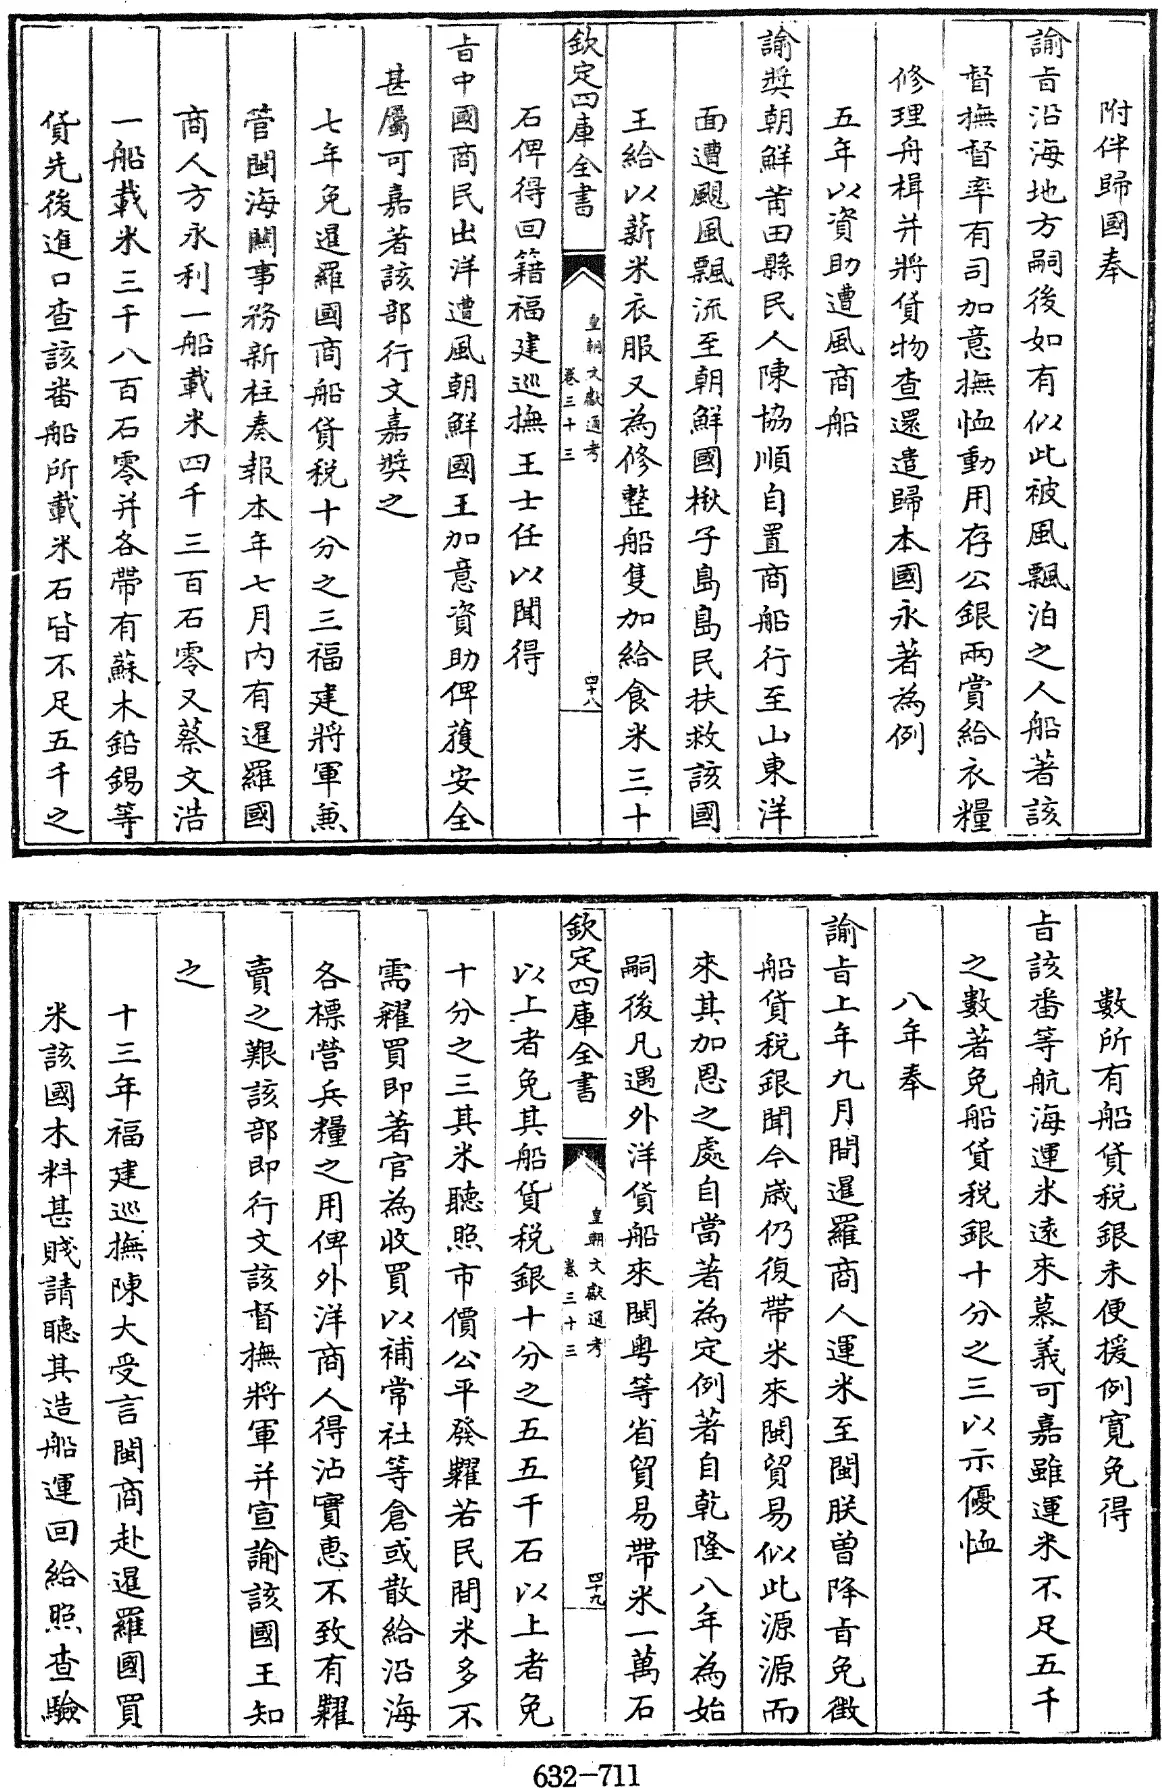 附伴歸國奉
諭㫖沿海地方嗣後如有似此被風飄泊之人船著該
督撫督率有司加意撫恤動用存公銀兩賞給衣糧
修理舟楫并將貨物查還遣歸本國永著為例
五年以資助遭風商船
諭奬朝鮮莆田縣民人陳協順自置商船行至山東洋
面遭颶風飄流至朝鮮國楸子島島民扶救該國
王給以薪米衣服又為修整船隻加給食米三十
欽定四庫全書
皇朝文獻通考
卷三十三
四十八
石俾得回籍福建巡撫王士任以聞得
㫖中國商民出洋遭風朝鮮國王加意資助俾獲安全
甚屬可嘉著該部行文嘉奬之
七年免暹羅國商船貨税十分之三福建將軍兼
管閩海關事務新柱奏報本年七月内有暹羅國
商人方永利一船載米四千三百石零又蔡文浩
一船載米三千八百石零并各帶有蘇木鉛錫等
貨先後進口查該番船所載米石皆不足五千之
數所有船貨税銀未便援例寛免得
㫖該番等航海運米逺來慕義可嘉雖運米不足五千
之數著免船貨税銀十分之三以示優恤
八年奉
諭㫖上年九月間暹羅商人運米至閩朕曽降㫖免徵
船貨税銀聞今嵗仍復帶米來閩貿易似此源源而
來其加恩之處自當著為定例著自乾隆八年為始
嗣後凡遇外洋貨船來閩粤等省貿易帶米一萬石
欽定四庫全書
皇朝文獻通考
卷三十三
四十九
以上者免其船貨税銀十分之五五千石以上者免
十分之三其米聽照市價公平發糶若民間米多不
需糴買即著官為收買以補常社等倉或散給沿海
各標營兵糧之用俾外洋商人得沾實惠不致有糶
賣之艱該部即行文該督撫將軍并宣諭該國王知
之
十三年福建巡撫陳大受言閩商赴暹羅國買
米該國木料甚賤請聽其造船運回給照查驗
632-711